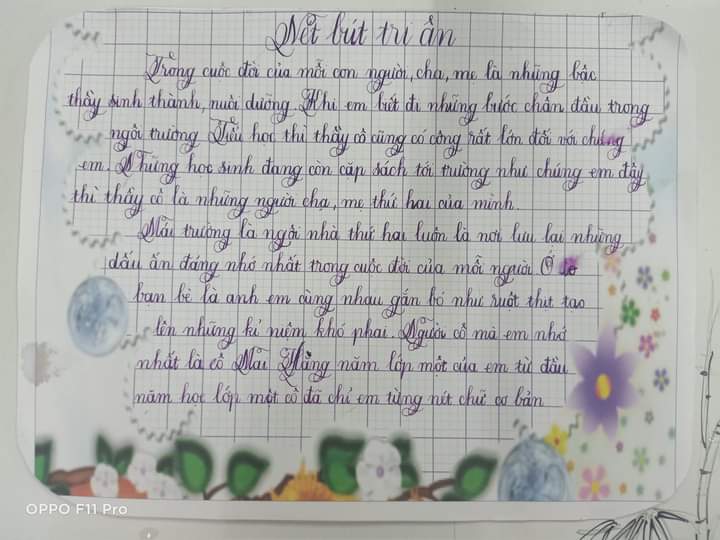 Nét bút tri ân
Trong cuộc đời của mỗi con người, cha, mẹ là những bậc
thầy sinh thành, nuôi dưỡng. Khi em bết đi những bước chân đầu trong
ngôi trường Tiểu học thì thầy cô cũng có công rất lớn đối với chúng
em. Những học sinh đang còn cặp sách tới trường như chúng em đây
thì thầy cô là những người cha, mẹ thứ hai của mình.
Mái trường là ngôi nhà thứ hai luôn là nơi lưu lại những
dấu ấn đáng nhớ nhất trong cuộc đời của mỗi người Ở
bạn bè là anh em cùng nhau gắn bó như ruột thịt tạo
lên những kỉ niệm khó phai. Người cô mà em nhớ
nhất là cô Mai Hằng năm lớp một của em từ đầu
năm học lớp một cô đã chỉ em từng nét chữ cơ bản
OPPO F11 Pro